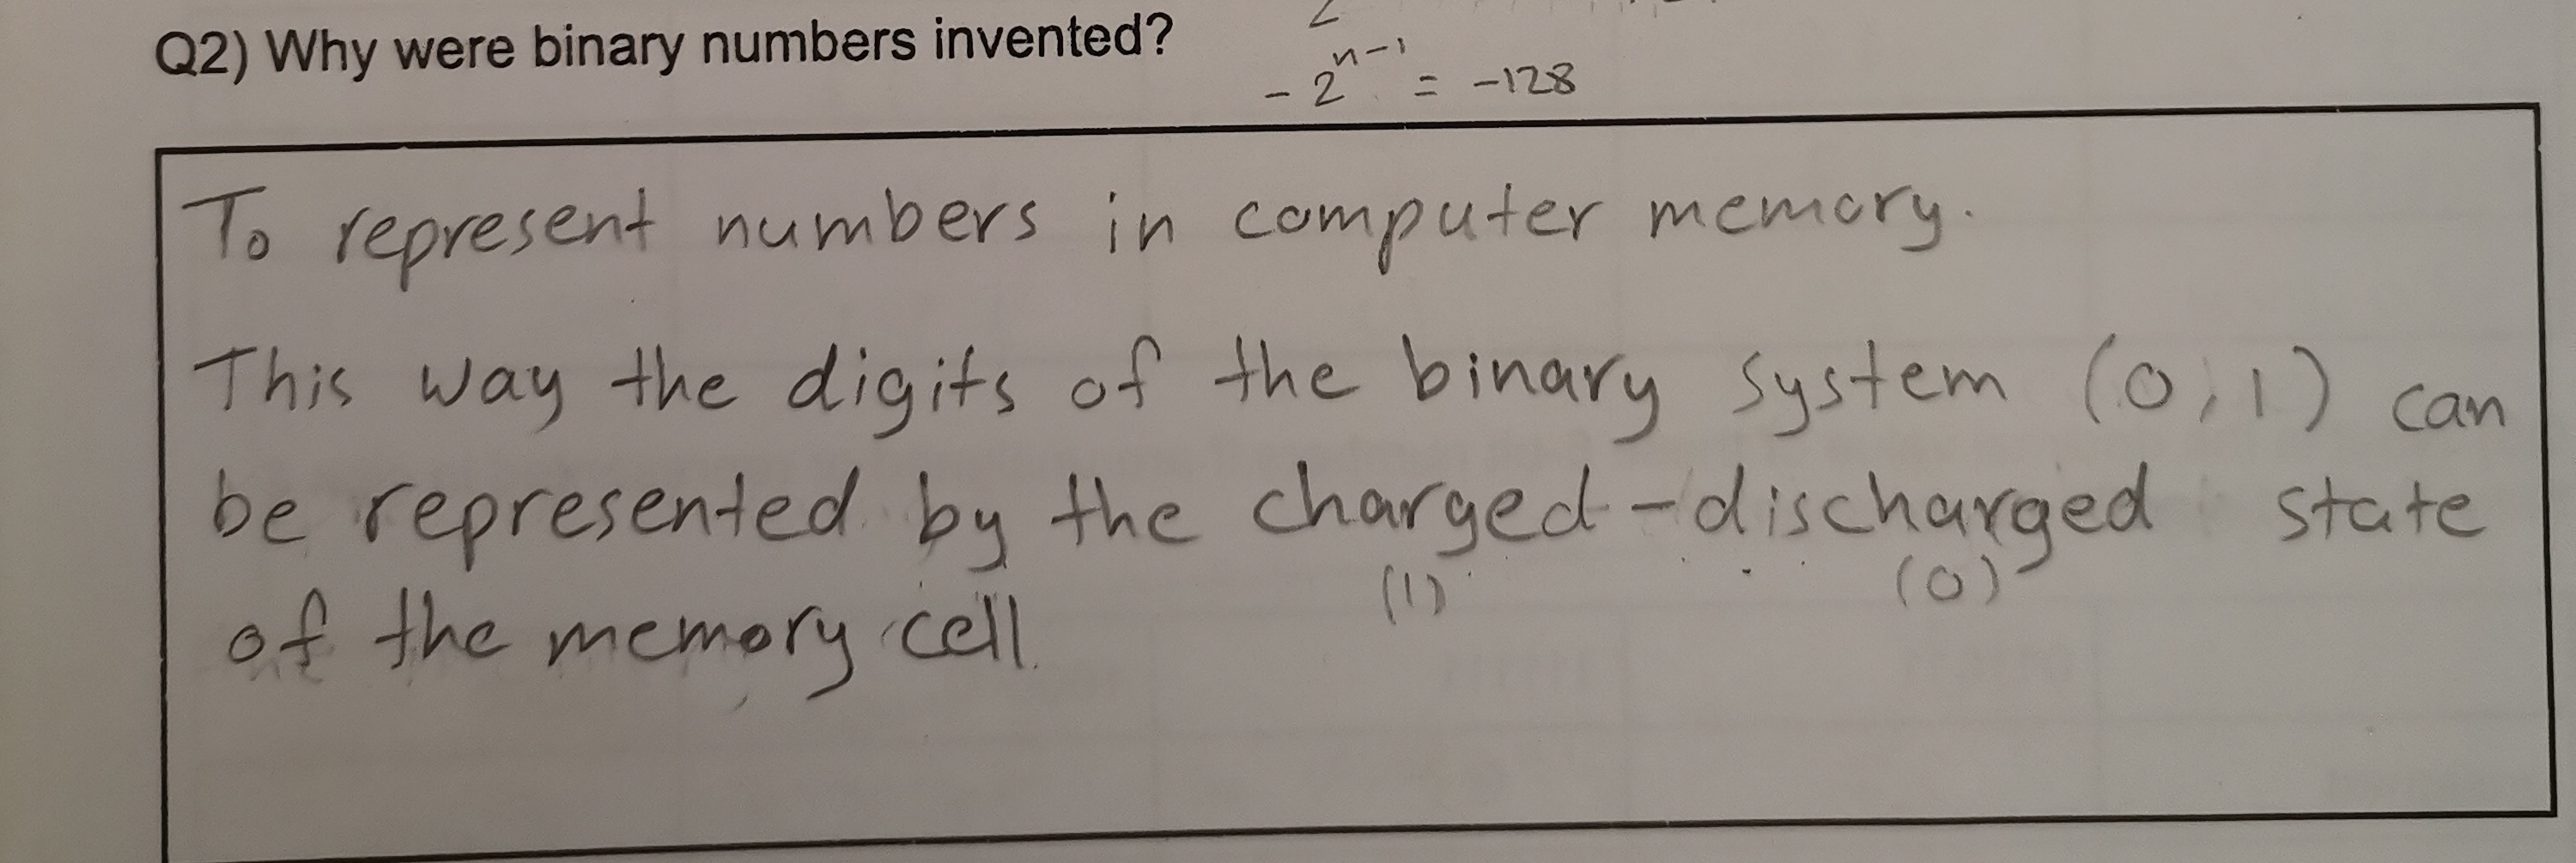 Q2) Why were binary numbers invented?
-2^{n-1} = -128
To represent numbers in computer memory.
This way the digits of the binary system (0,1) can
be represented by the charged-discharged state
(1) (0)
of the memory cell.